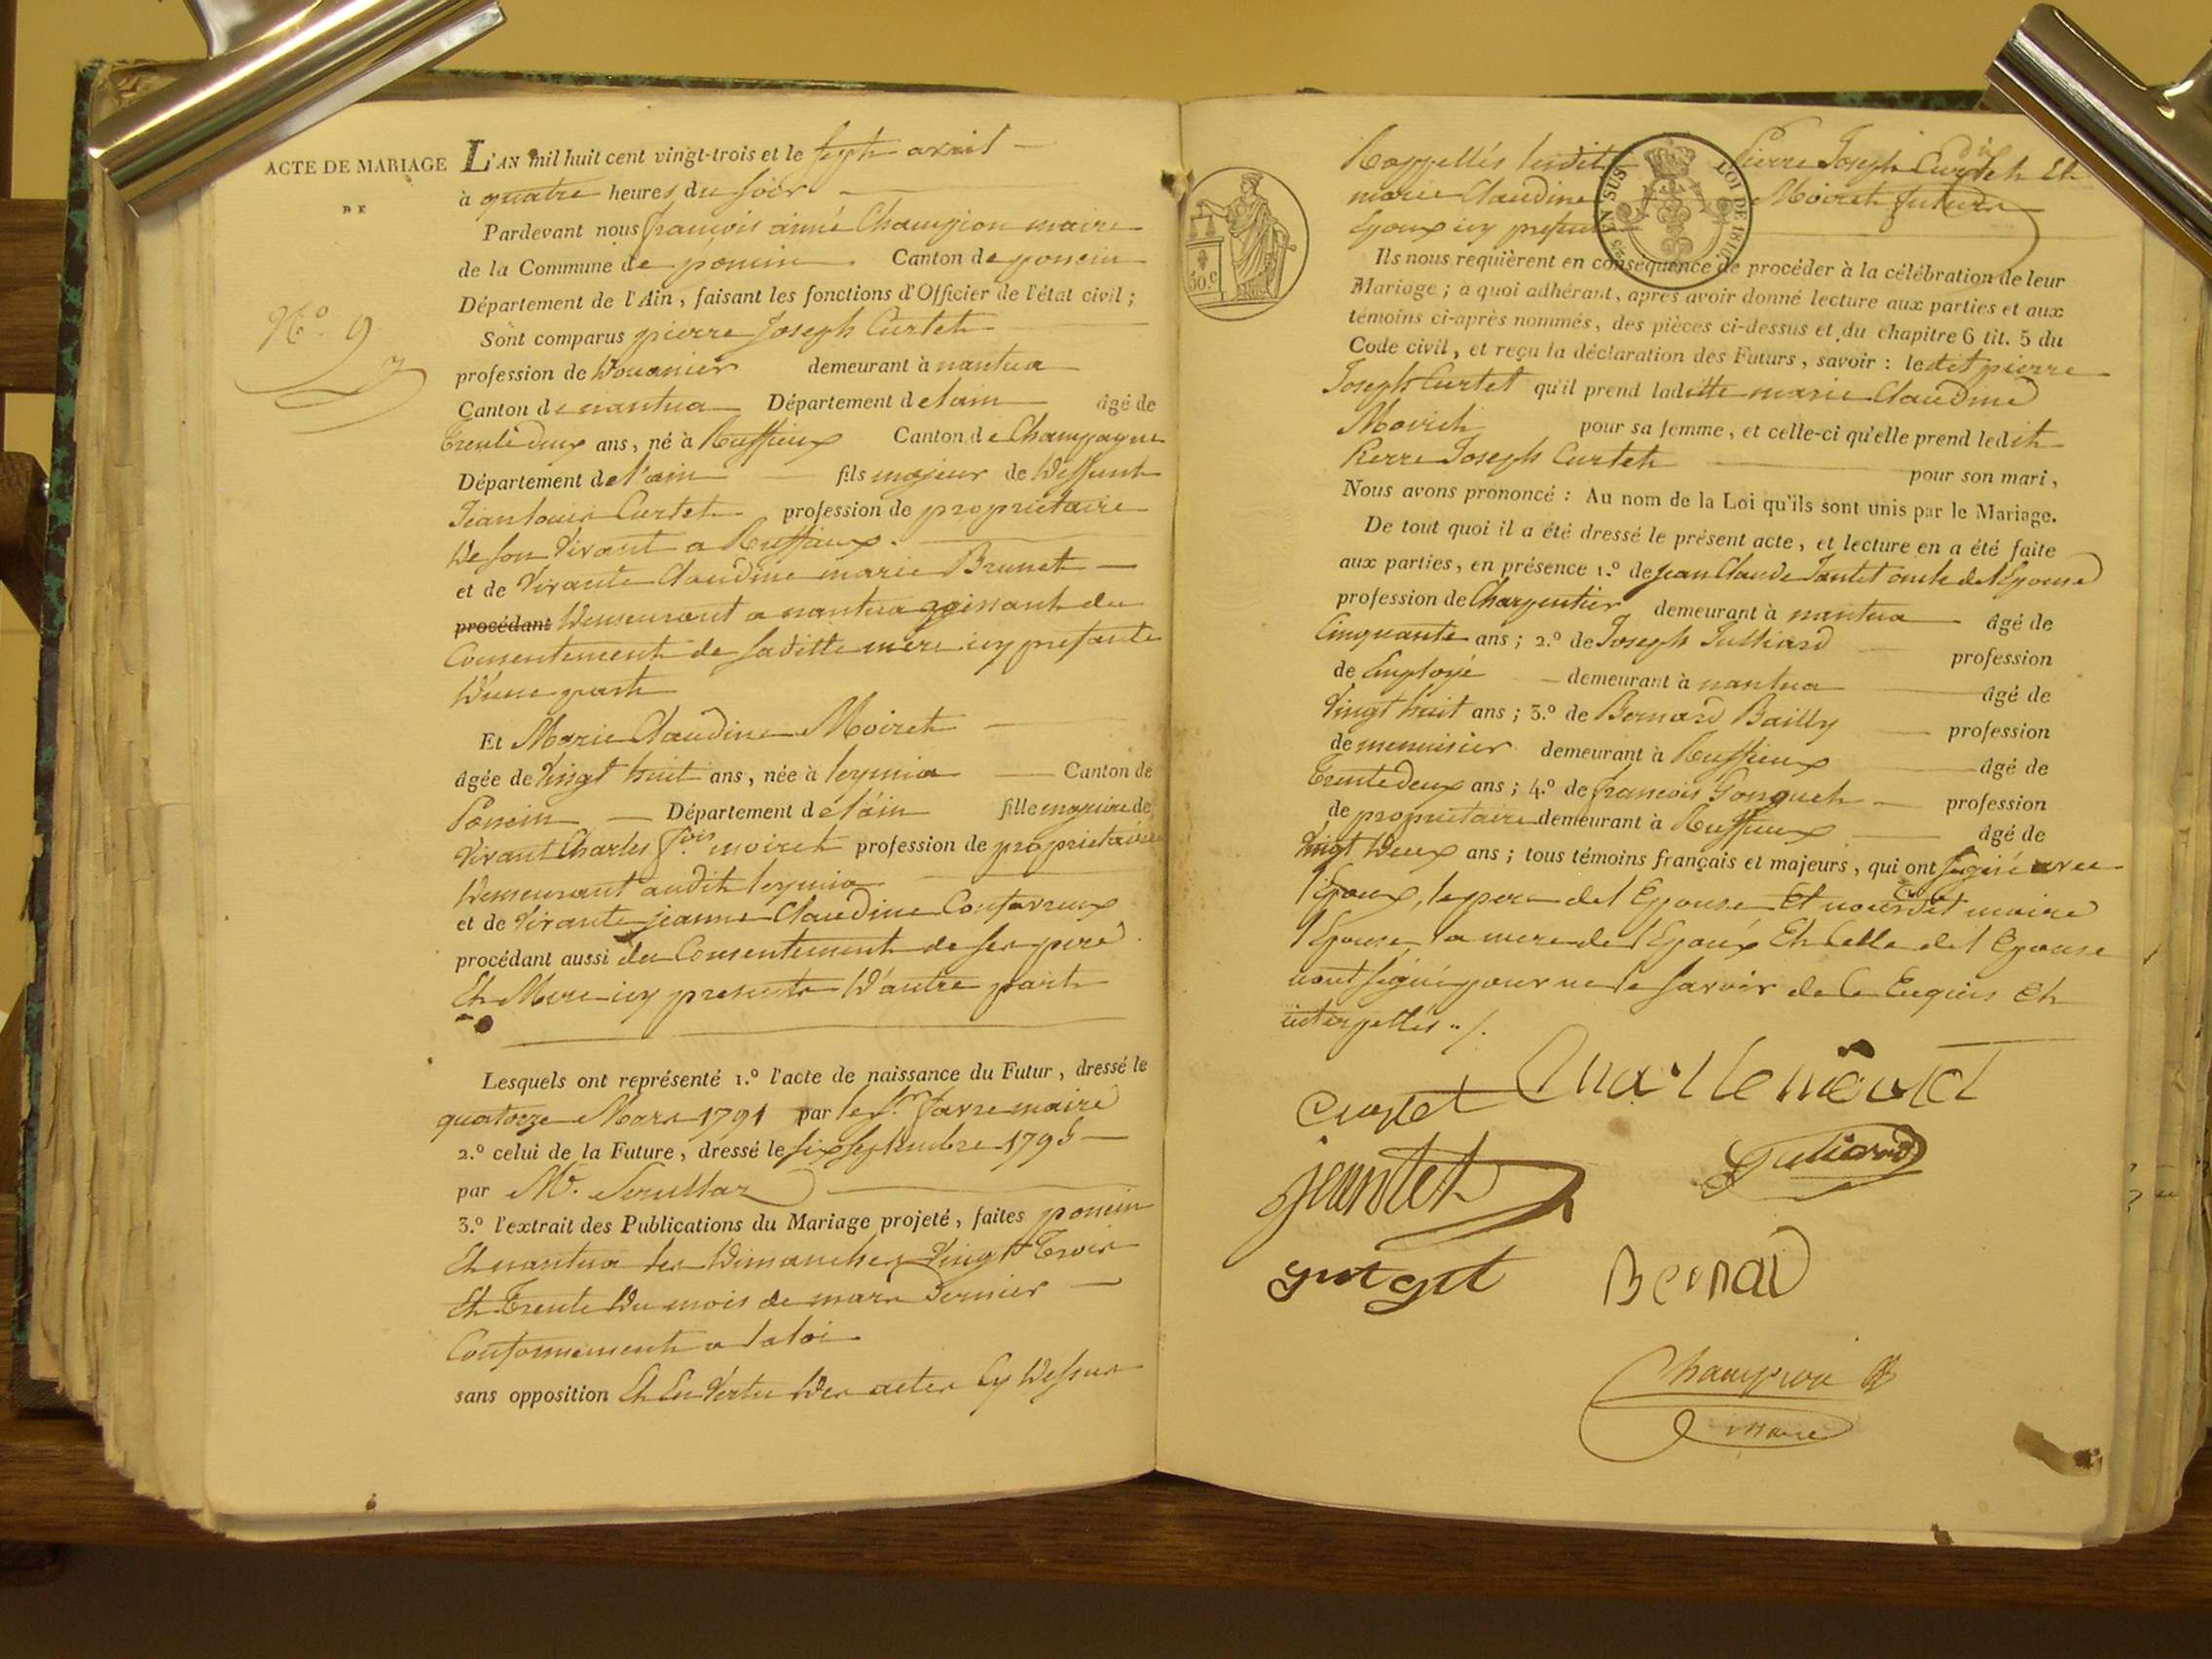 ACTE DE MARIAGE
DE
N.º 9
L'AN mil huit cent vingt-trois et le sept avril
à quatre heures du soir
Pardevant nous françois aimé Champion maire
de la Commune de poncin Canton de poncin
Département de l'Ain, faisant les fonctions d'Officier de l'état civil;
Sont comparus pierre Joseph Curtet
profession de Douanier demeurant à nantua
Canton de nantua Département de lain âgé de
Trente deux ans, né à Ruffieux Canton de Champagne
Département de l'ain fils majeur de Deffunt
Jean louis Curtet profession de propriétaire
De son Vivant a Ruffieux.
et de Vivante Claudine marie Brunet
procédant Demeurant a nantua agissant du
Consentement de saditte mère icy presante
D'une part
Et Marie Claudine Moiret
âgée de Vingt huit ans, née à leymia Canton de
Poncin Département de l'ain fille majeure de
Vivant Charles f.ois moiret profession de propriétaire
Demeurant audit leymia
et de Vivante jeanne Claudine Confavreux
procédant aussi du Consentement de ses pere
Et Mere icy presents D'autre part
Lesquels ont représenté 1.º l'acte de naissance du Futur, dressé le
quatorze Mars 1791 par le s.r favre maire
2.º celui de la Future, dressé le six septembre 1795
par Mr.
3.º l'extrait des Publications du Mariage projeté, faites poncin
Et nantua les Dimanches Vingt Trois
Et Trente Du mois de mars Dernier
Conformement a la loi
sans opposition Et En Vertu Des actes Cy Dessus
Rappellés lesdits Pierre Joseph Curtet Et
marie Claudine Moiret futurs
Epoux icy presents
50.c
EN SUS
LOI DE 1816
Ils nous requièrent en conséquence de procéder à la célébration de leur
Mariage; a quoi adhérant, après avoir donné lecture aux parties et aux
témoins ci-après nommés, des pièces ci-dessus et du chapitre 6 tit. 5 du
Code civil, et reçu la déclaration des Futurs, savoir: ledit pierre
Joseph Curtet qu'il prend laditte marie Claudine
Moirét pour sa femme, et celle-ci qu'elle prend ledit
Pierre Joseph Curtet pour son mari,
Nous avons prononcé: Au nom de la Loi qu'ils sont unis par le Mariage.
De tout quoi il a été dressé le présent acte, et lecture en a été faite
aux parties, en présence 1.º de jean Claude Jantet oncle de l'Epouse
profession de Charpentier demeurant à nantua âgé de
Cinquante ans; 2.º de Joseph Julliard profession
de Employé demeurant à nantua âgé de
Vingt huit ans; 3.º de Bernard Bailly profession
de menuisier demeurant à Ruffieux âgé de
Trente deux ans; 4.º de françois Gonguet profession
de propriétaire demeurant à Ruffieux âgé de
Vingt Deux ans; tous témoins français et majeurs, qui ont signé avec
l'Epoux, le pere de l'Epouse Et nous dit maire
l'Epouse, la mere de l'Epoux Et Celle de l'Epouse
n'ont signé pour ne le savoir de Ce Enquis Et
interpellés ./.
Curtet Charle moiret
jeantet Juliard
Bernard
Champion
maire